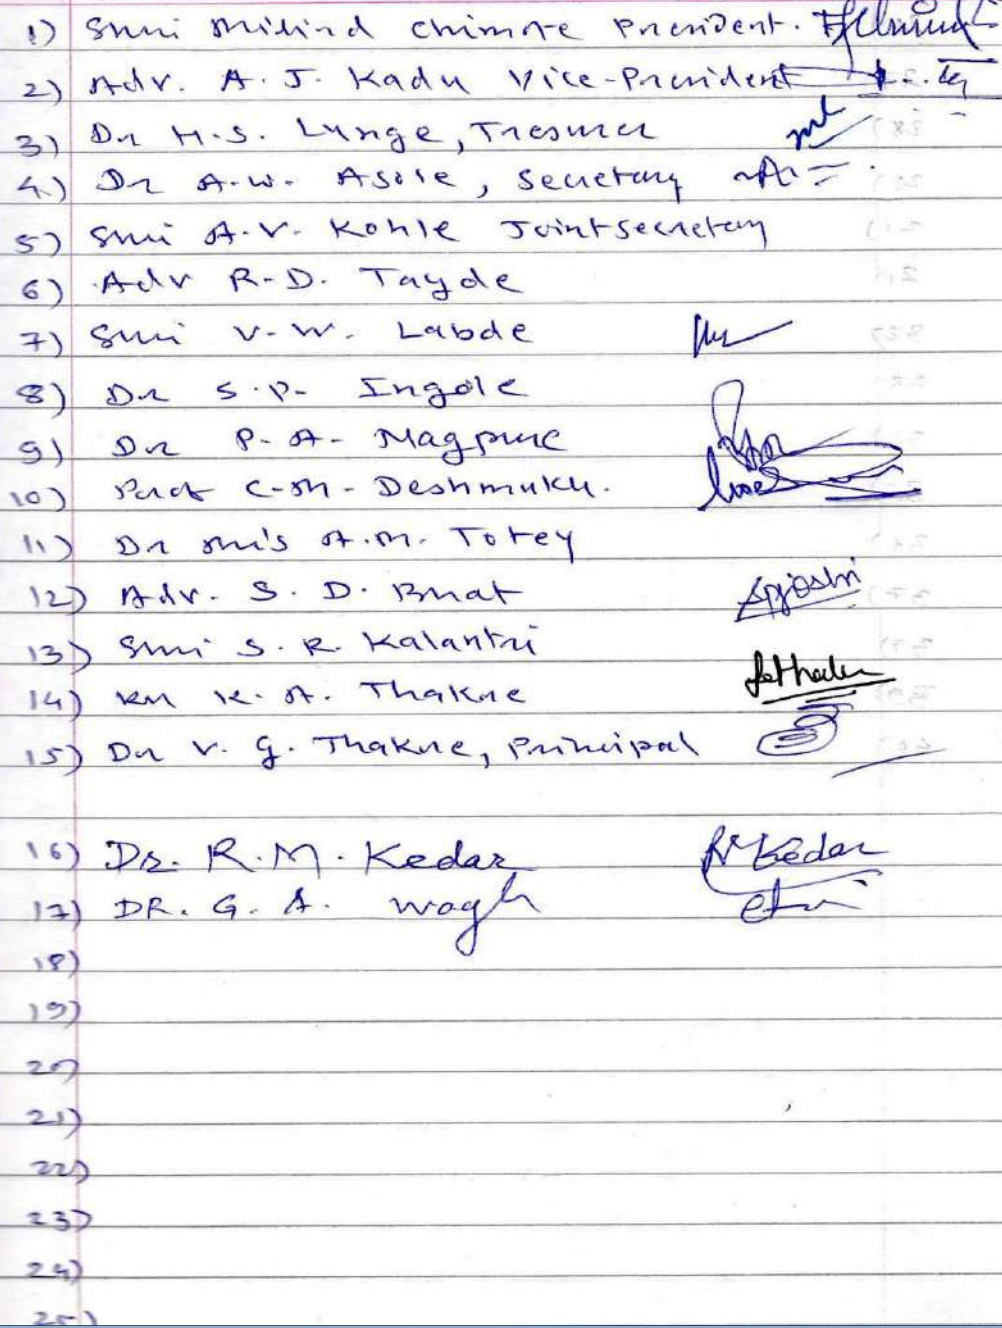 1) Shri Milind Chimote President.
2) Adv. A. J. Kadu Vice-President
3) Dr H.S. Lunge, Tresurer
4) Dr A.W. Asole, Secretary
5) Shri A.V. Kohle Joint secretary
6) Adv R.D. Tayde
7) Shri V.W. Labde
8) Dr S.P. Ingole
9) Dr P.A. Magpure
10) Prof C.M. Deshmukh.
11) Dr Mis A.M. Totey
12) Adv. S. D. Bhat Spjoshi
13) Shri S. R. Kalantri
14) Ku K. A. Thakre
15) Dr V. G. Thakre, Principal
16) Dr. R.M. Kedar RMKedar
17) DR. G. A. Wagh
18)
19)
20)
21)
22)
23)
24)
25)